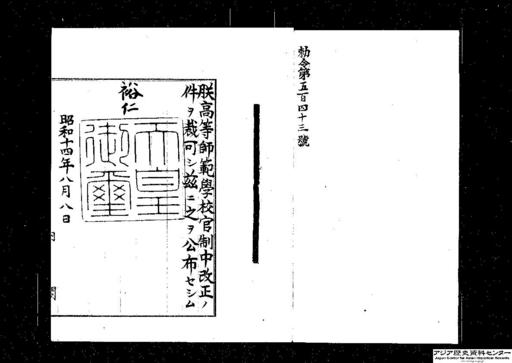 勅令第五百四十三號
朕高等師範學校官制中改正ノ
件ヲ裁可シ茲ニ之ヲ公布セシム
裕仁
天皇
御璽
昭和十四年八月八日
内閣
アジア歴史資料センター
Japan Center for Asian Historical Records